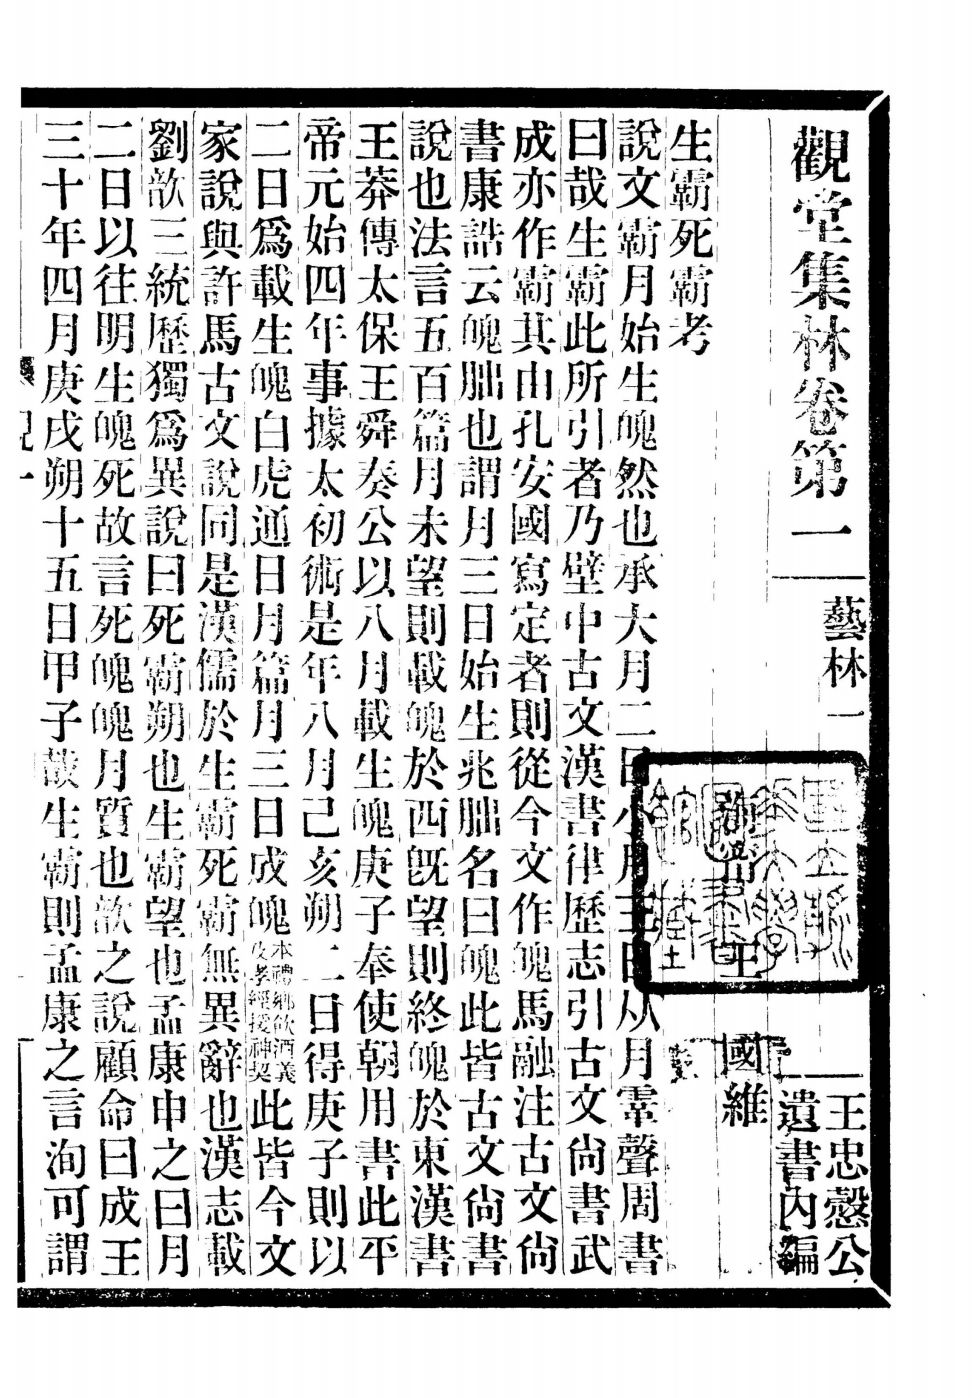 觀堂集林卷第一 藝林一 王忠慤公遺書內編
海甯 王 國維
生霸死霸考
說文霸月始生魄然也承大月二日小月三日从月䨣聲周書
曰哉生霸此所引者乃壁中古文漢書律歷志引古文尙書武
成亦作霸其由孔安國寫定者則從今文作魄馬融注古文尙
書康誥云魄朏也謂月三日始生兆朏名曰魄此皆古文尙書
說也法言五百篇月未望則載魄於西旣望則終魄於東漢書
王莽傳太保王舜奏公以八月載生魄庚子奉使朝用書此平
帝元始四年事據太初術是年八月己亥朔二日得庚子則以
二日爲載生魄白虎通日月篇月三日成魄本禮鄉飲酒義及孝經援神契此皆今文
家說與許馬古文說同是漢儒於生霸死霸無異辭也漢志載
劉歆三統歷獨爲異說曰死霸朔也生霸望也孟康申之曰月
二日以往明生魄死故言死魄魄月質也歆之說顧命曰成王
三十年四月庚戌朔十五日甲子哉生霸則孟康之言洵可謂